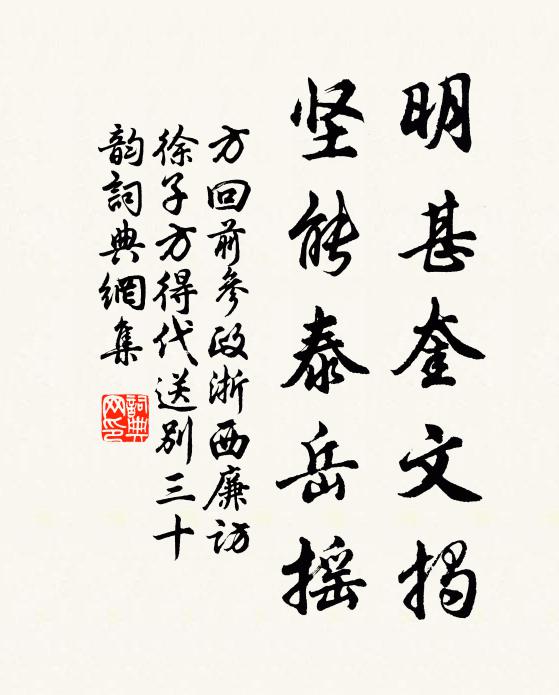 明甚奎文揭
坚能泰岳摇
方回前参政浙西廉访
徐子方得代送别三十
韵詞典網集
詞典
网印